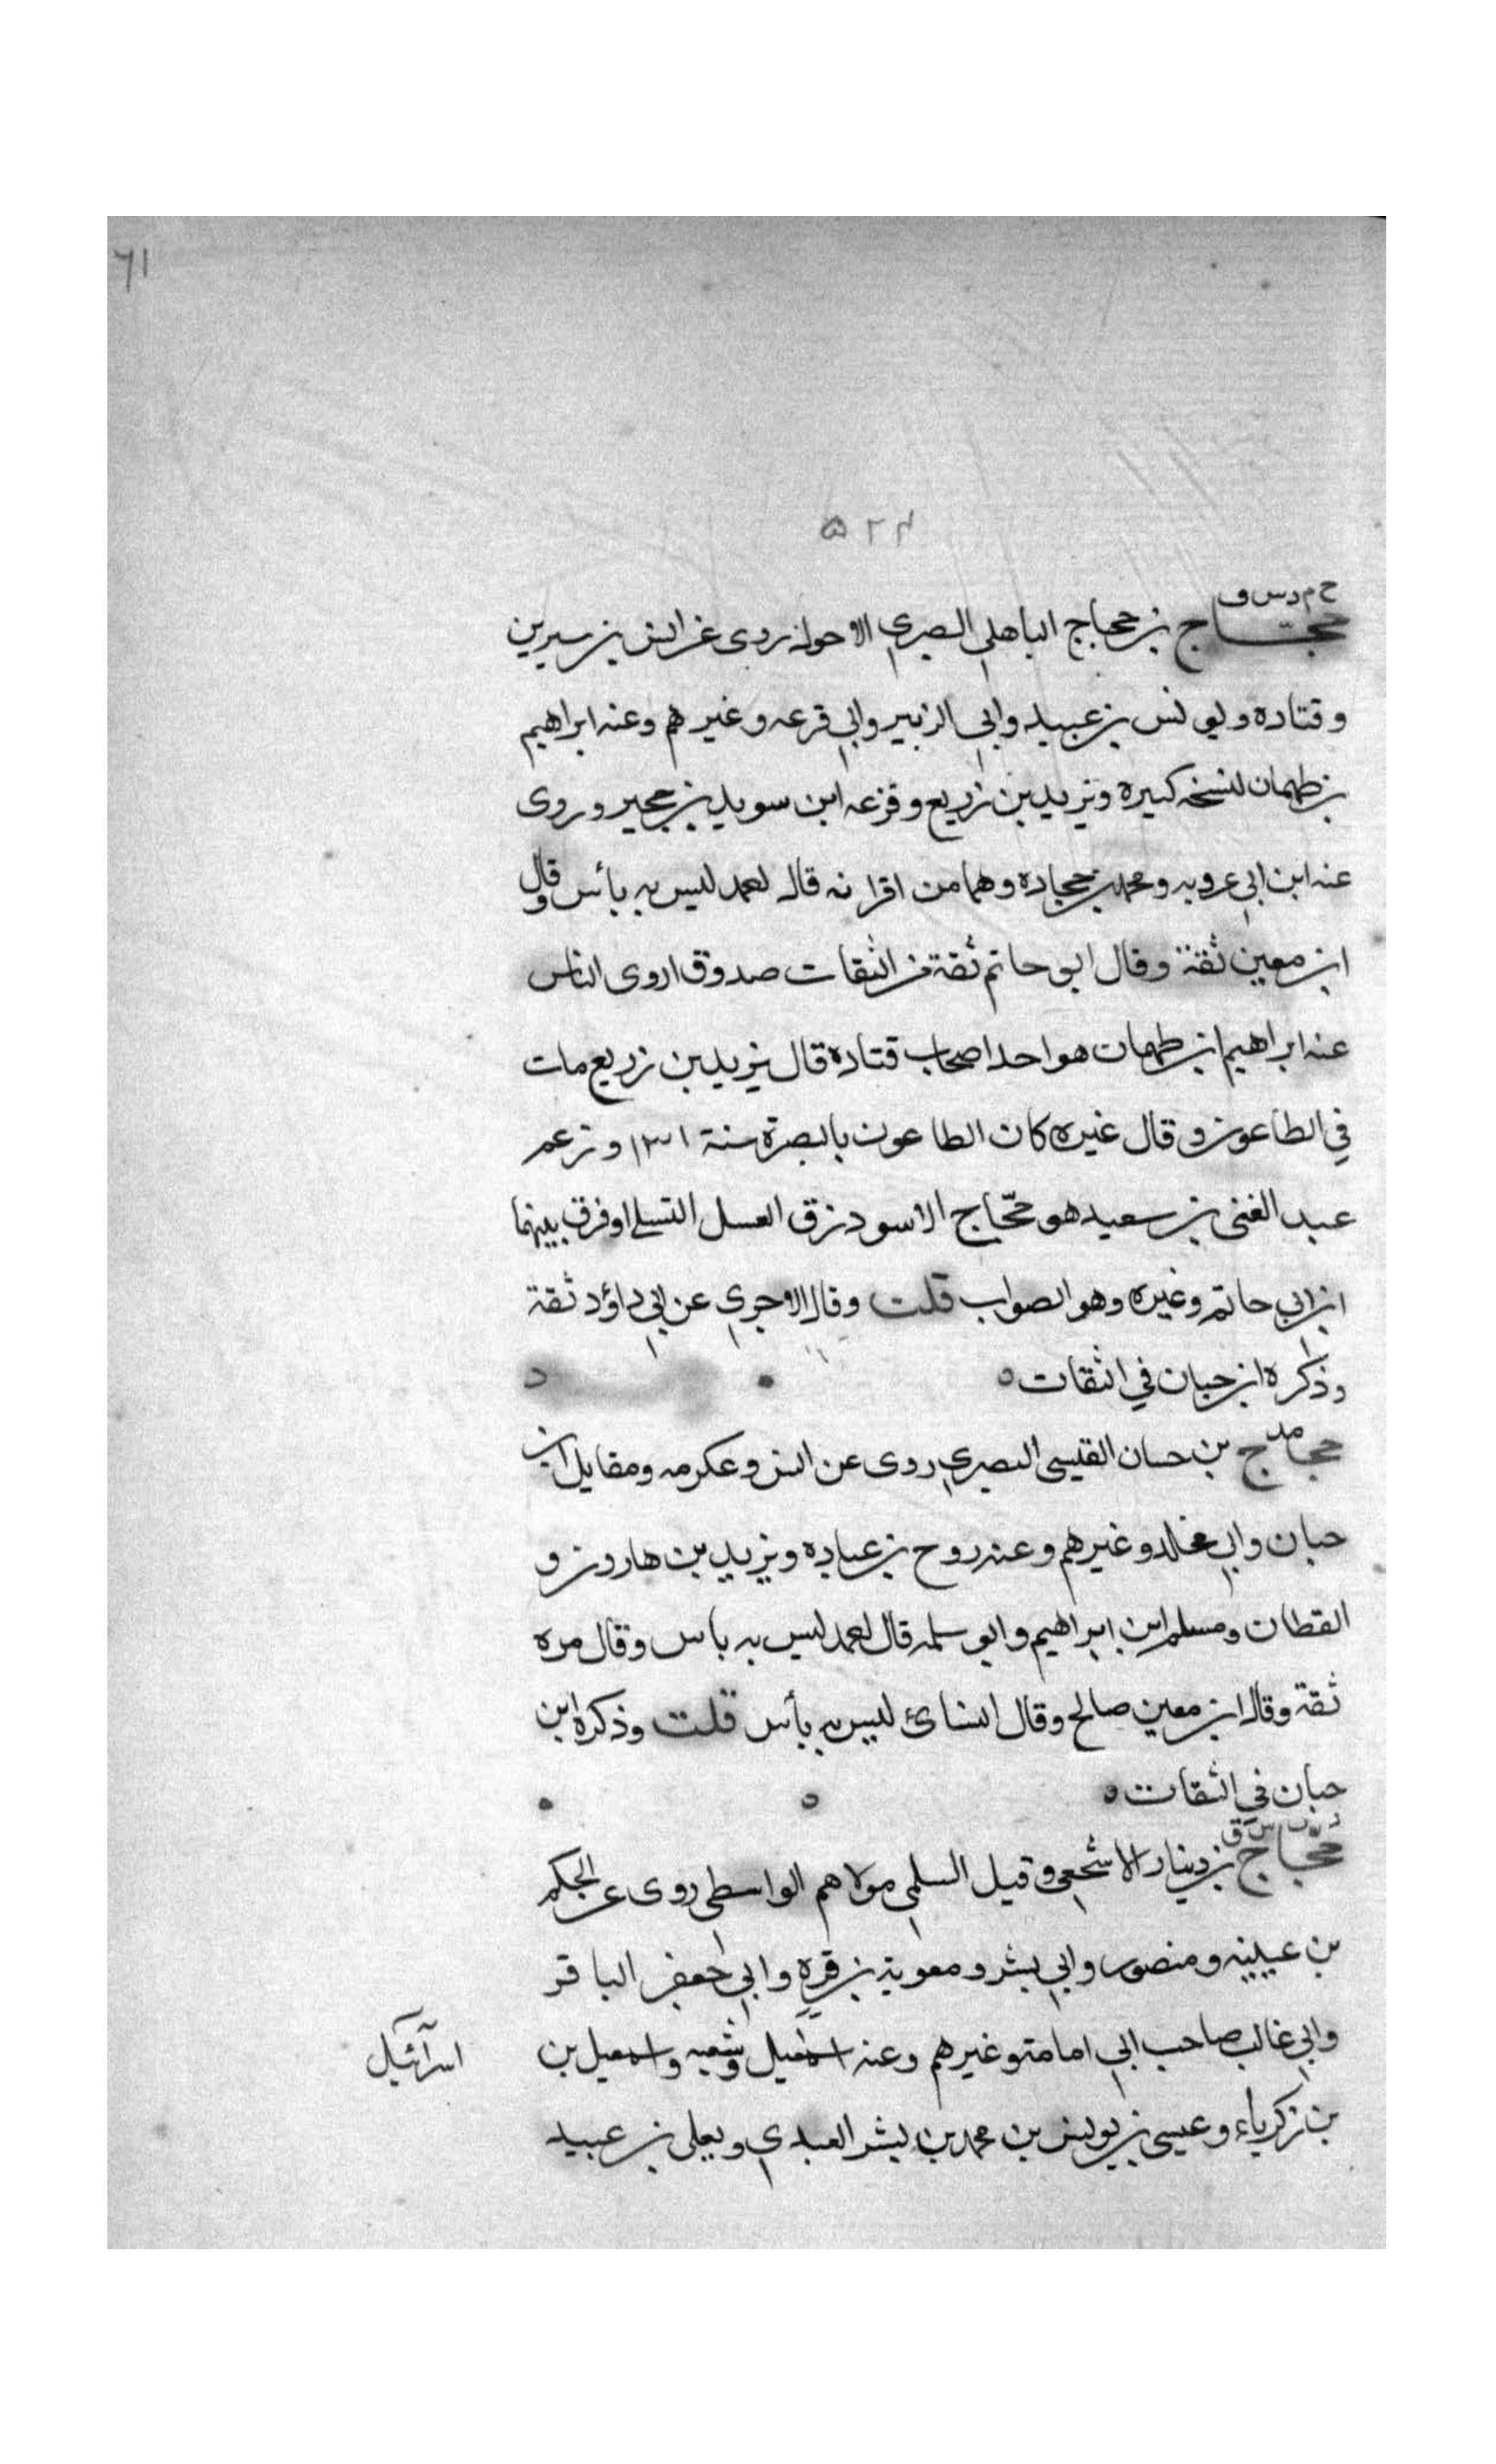 ٦١
٥٢٤
خ م د س ق
حجاج بن حجاج الباهلي البصري الاحول روى عن انس بن سيرين
وقتاده ويونس بن عبيد وابي الزبير وابي قزعه وغيرهم وعنه ابراهيم
بن طهمان نسخه كبيره ويزيد بن زريع وقزعه ابن سويد بن حجير وروى
عنه ابن ابي عروبه ومحمد بن حجاده وهما من اقرانه قال احمد ليس به بأس وقال
ابن معين ثقة وقال ابو حاتم ثقة من الثقات صدوق اروى الناس
عنه ابراهيم ابن طهمان هو احد اصحاب قتاده قال يزيد بن زريع مات
في الطاعون وقال غيره كان الطاعون بالبصرة سنة ١٣١ وزعم
عبد الغني بن سعيد هو حجّاج الاسود زق العسل وفرق بينهما
ابن ابي حاتم وغيره وهو الصواب قلت وقال الاجري عن ابي داؤد ثقة
وذكره ابن حبان في الثقات ه
مد
حجاج بن حسان القيسي البصري روى عن انس وعكرمه ومقاتل ابن
حبان وابي مخلد وغيرهم وعنه روح بن عباده ويزيد بن هارون و
القطان ومسلم ابن ابراهيم وابو سلمه قال احمد ليس به باس وقال مره
ثقة وقال ابن معين صالح وقال النسائ ليس به بأس قلت وذكره ابن
حبان في الثقات ه
د ت س ق
حجّاج بن دينار الاشجعي وقيل السلمي مولاهم الواسطي روى عن الحكم
بن عيينه ومنصور وابي بشر ومعوية بن قره وابي جعفر الباقر
وابي غالب صاحب ابي امامة وغيرهم وعنه اسمعيل وشعبه واسمعيل بن
اسرآئيل
بن زكرياء وعيسى بن يونس بن محمد بن بشر العبدي ويعلى بن عبيد